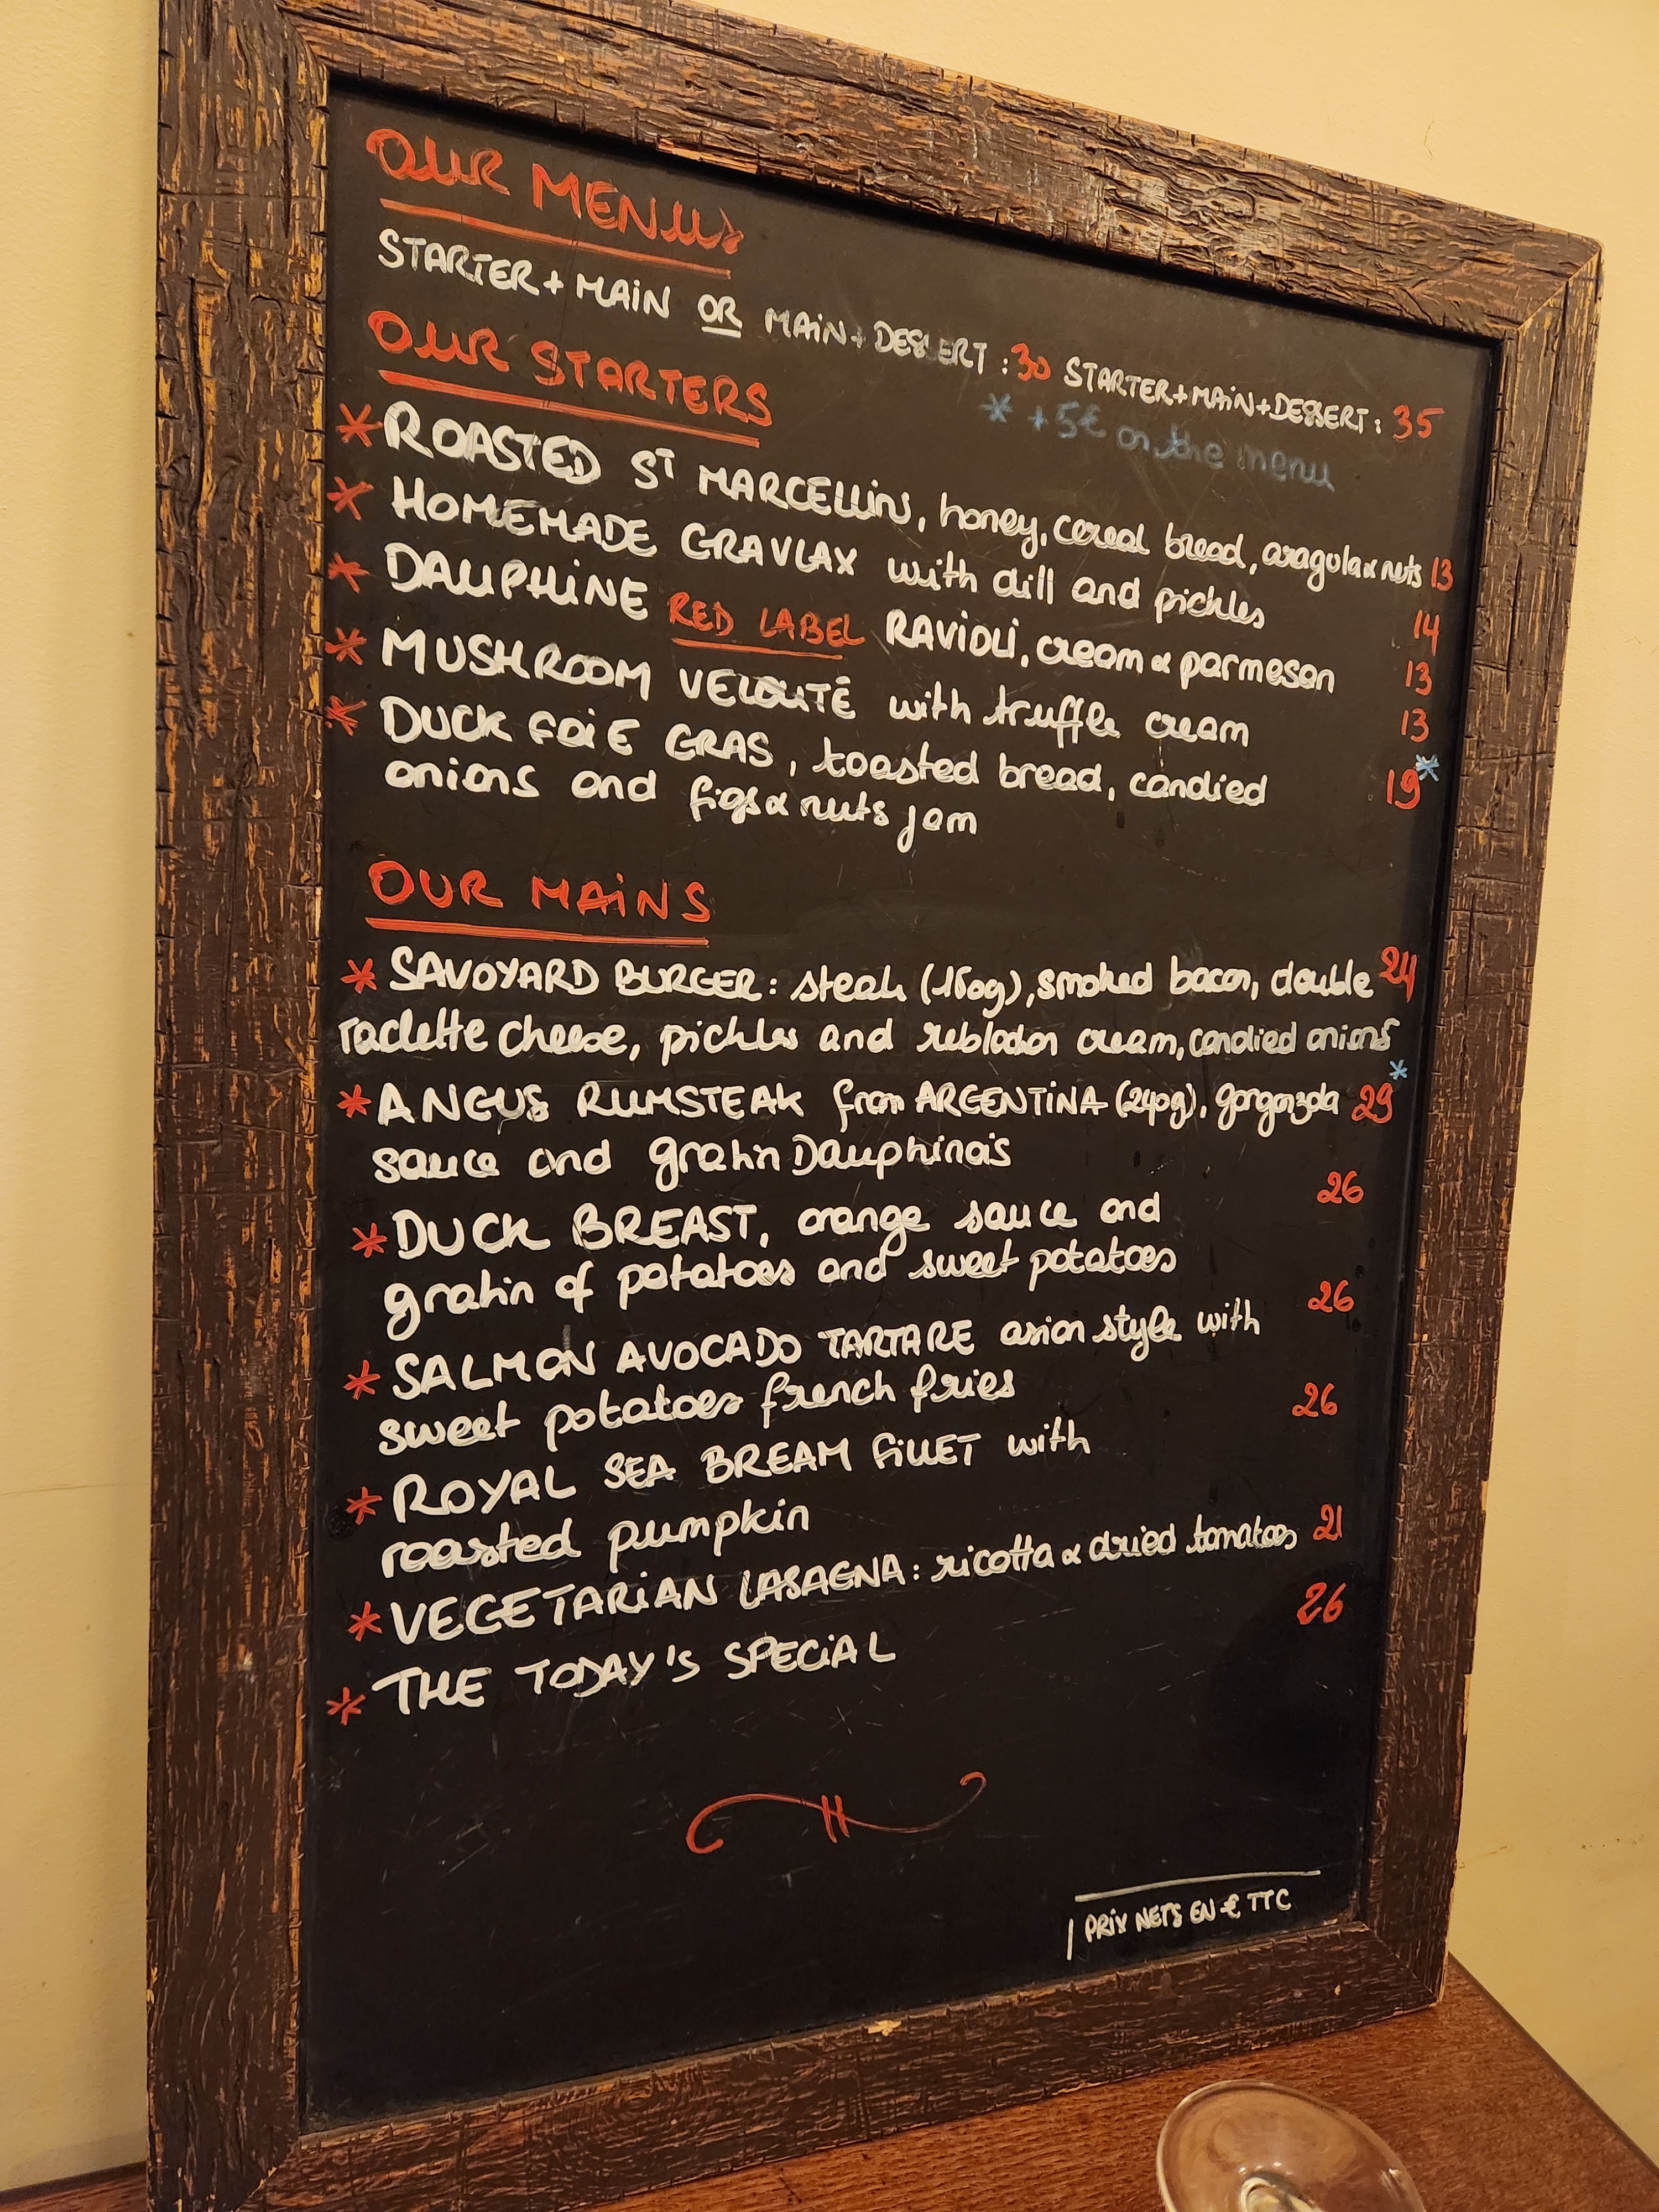 OUR MENUS
STARTER + MAIN OR MAIN + DESSERT : 30 STARTER+MAIN+DESSERT : 35
* +5€ on the menu
OUR STARTERS
* ROASTED ST MARCELLIN, honey, cereal bread, aragula & nuts 13
* HOMEMADE GRAVLAX with dill and pickles 14
* DAUPHINE RED LABEL RAVIOLI, cream & parmesan 13
* MUSHROOM VELOUTÉ with truffle cream 13
* DUCK FOIE GRAS, toasted bread, candied 19*
onions and figs & nuts jam
OUR MAINS
* SAVOYARD BURGER : steak (160g), smoked bacon, double 24
raclette cheese, pickles and reblochon cream, candied onions
* ANGUS RUMSTEAK from ARGENTINA (240g), gorgonzola 29*
sauce and gratin Dauphinois
* DUCK BREAST, orange sauce and 26
gratin of potatoes and sweet potatoes
* SALMON AVOCADO TARTARE asian style with 26
sweet potatoes french fries
* ROYAL SEA BREAM FILLET with 26
roasted pumpkin
* VEGETARIAN LASAGNA : ricotta & dried tomatoes 21
* THE TODAY'S SPECIAL 26
PRIX NETS EN € TTC